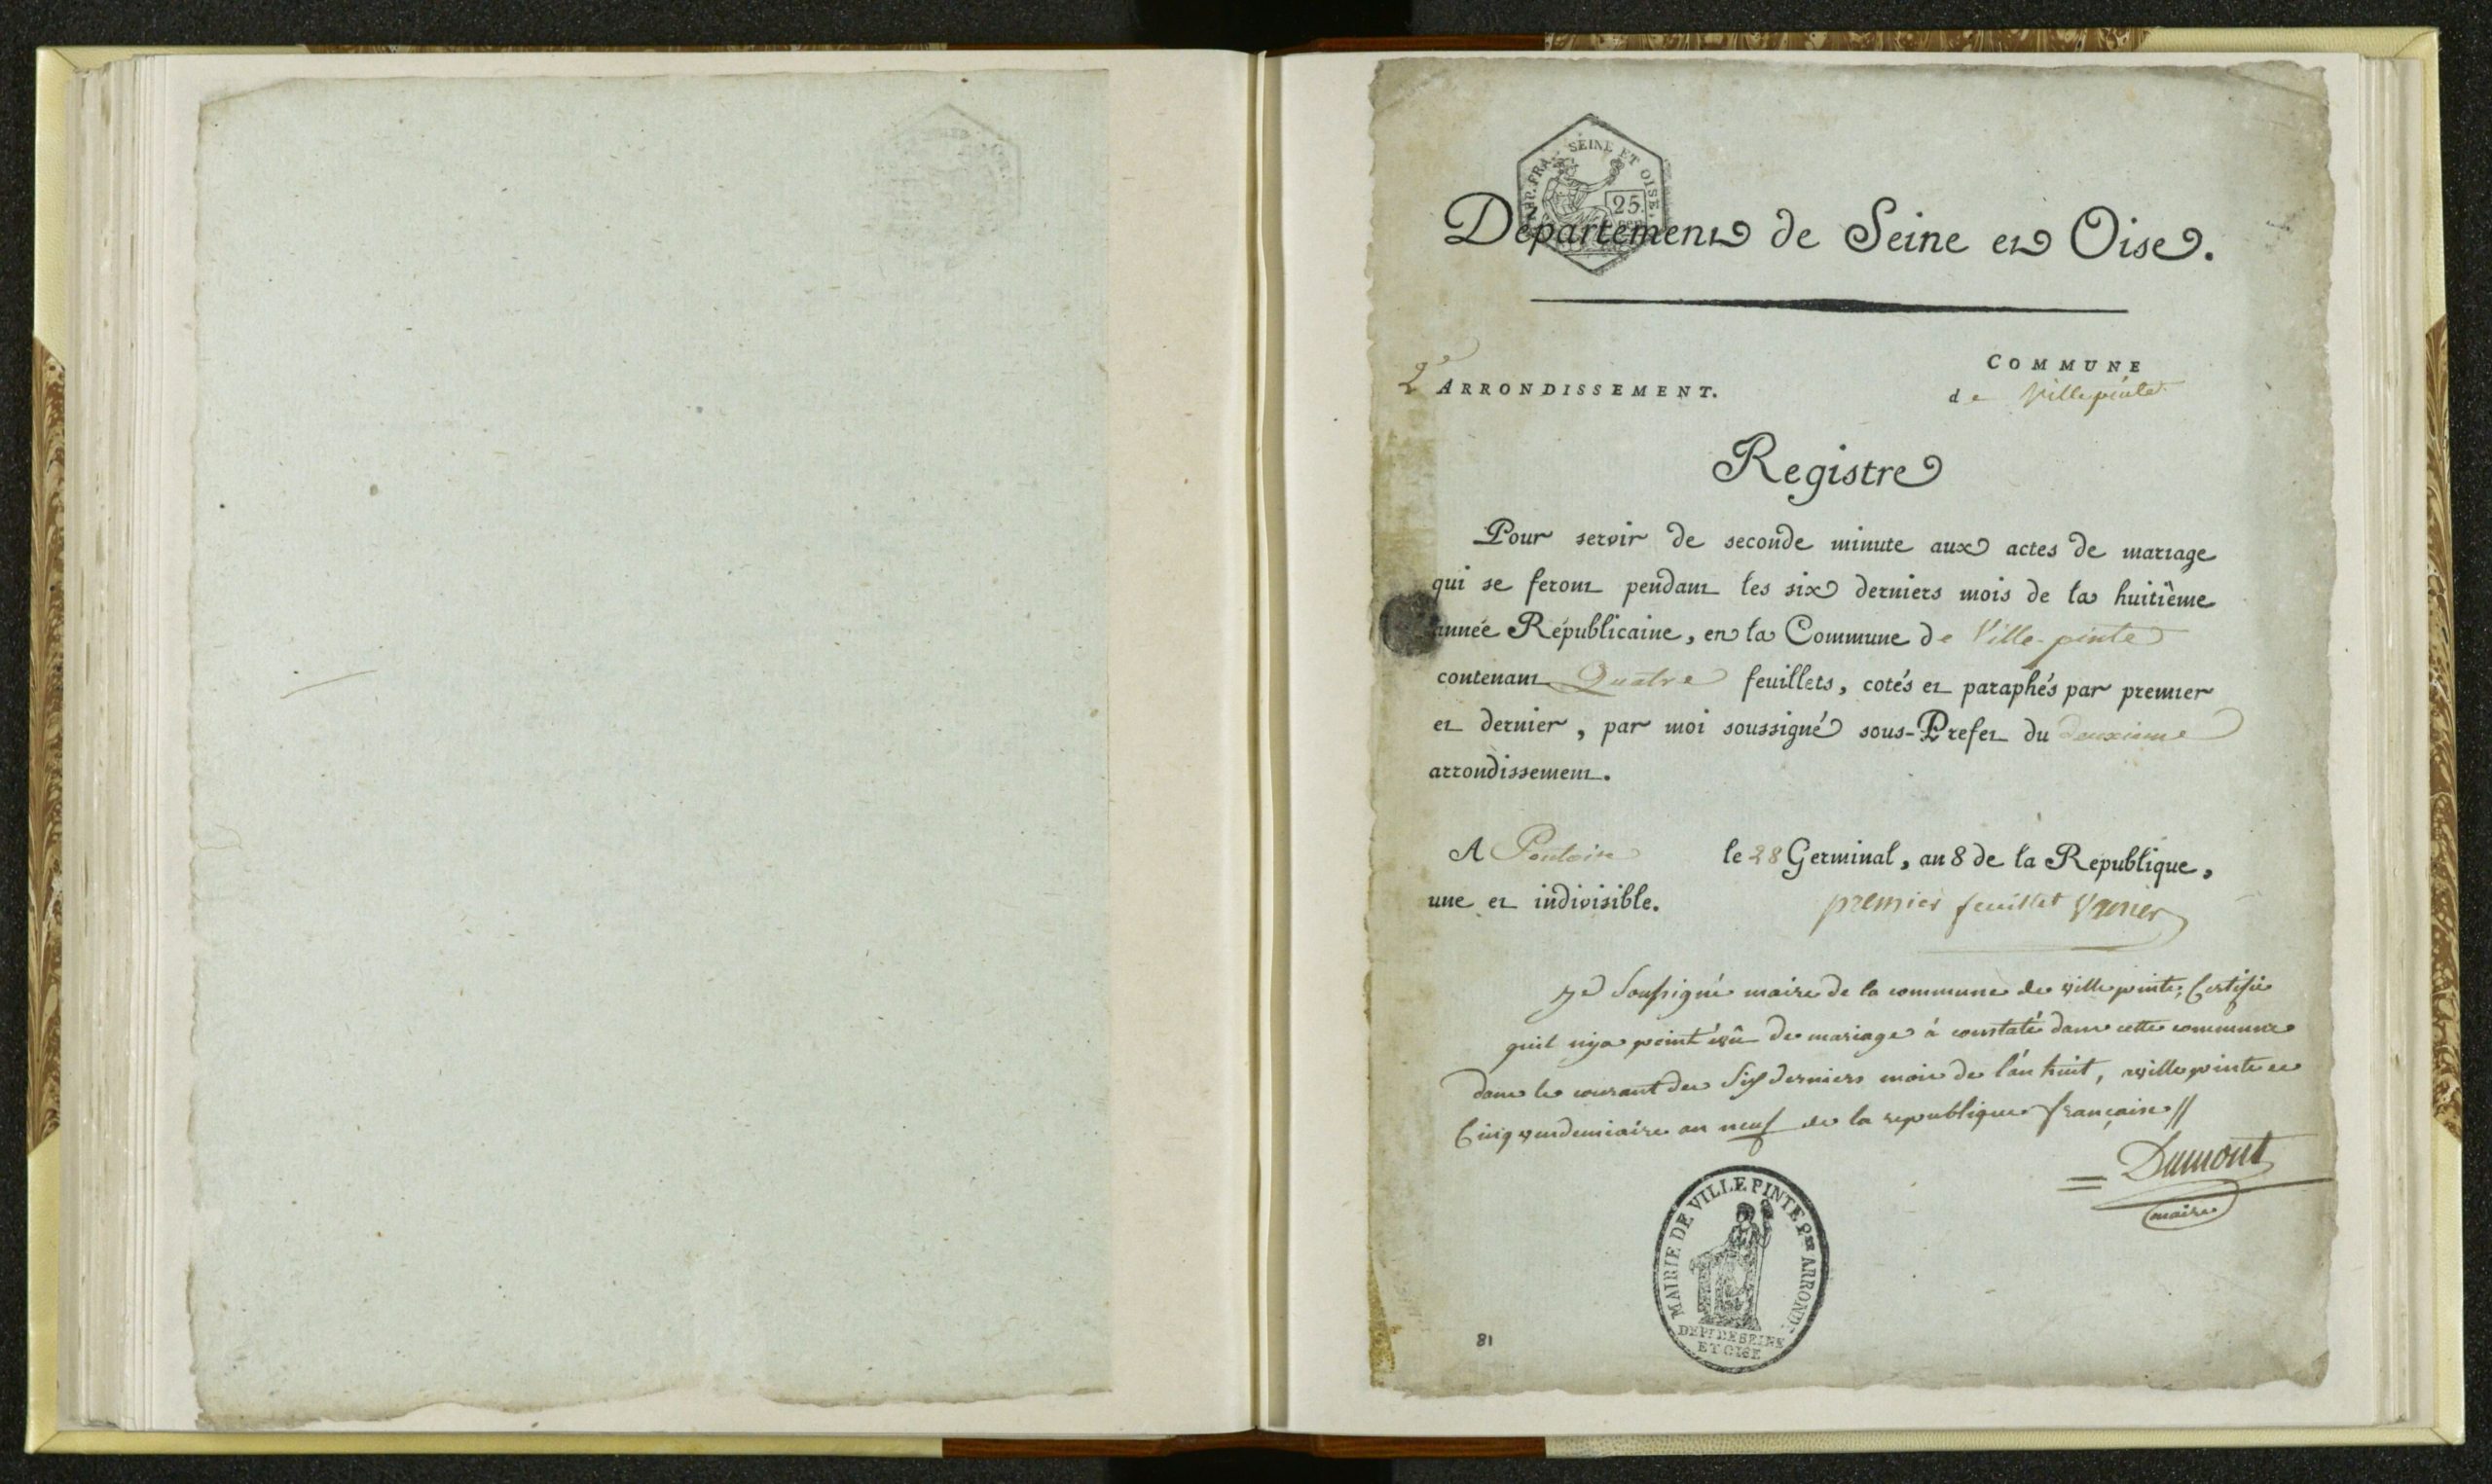 SEINE ET OISE.
25.
Département de Seine et Oise.
2e ARRONDISSEMENT.
COMMUNE
de Villepinte
Registre
Pour servir de seconde minute aux actes de mariage
qui se feront pendant les six derniers mois de la huitième
année Républicaine, en la Commune de Ville-pinte
contenant Quatre feuillets, cotés et paraphés par premier
et dernier, par moi soussigné sous-Prefet du deuxieme
arrondissement.
A Pontoise le 28 Germinal, an 8 de la République,
une et indivisible.
premier feuillet
Je Soussigné maire de la commune de villepinte, Certifie
quil nya point évû de mariage à constaté dans cette commune
dans le courant des Six derniers mois de l'an huit, avillepinte ce
Cinq vendemiaire an neuf de la republique française //
Dumont
maire
MAIRIE DE VILLEPINTE 2me ARROND.
DEPT DE SEINE
ET OISE
81